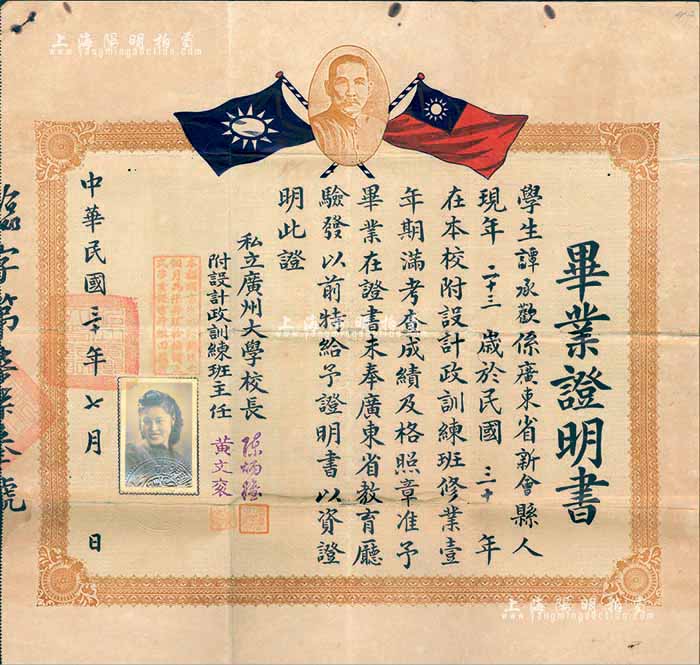 上海陽明拍賣
www.yangmingauction.com
畢業證明書
學生譚承歡係廣東省新會縣人
現年二十三歲於民國三十年
在本校附設計政訓練班修業壹
年期滿考查成績及格照章准予
畢業在證書未奉廣東省教育廳
驗發以前特給予證明書以資證
明此證
私立廣州大學校長
附設計政訓練班主任 黃文袞
中華民國三十年七月 日
臨字第 號
上海陽明拍賣
www.yangmingauction.com
上海陽明拍賣
www.yangmingauction.com